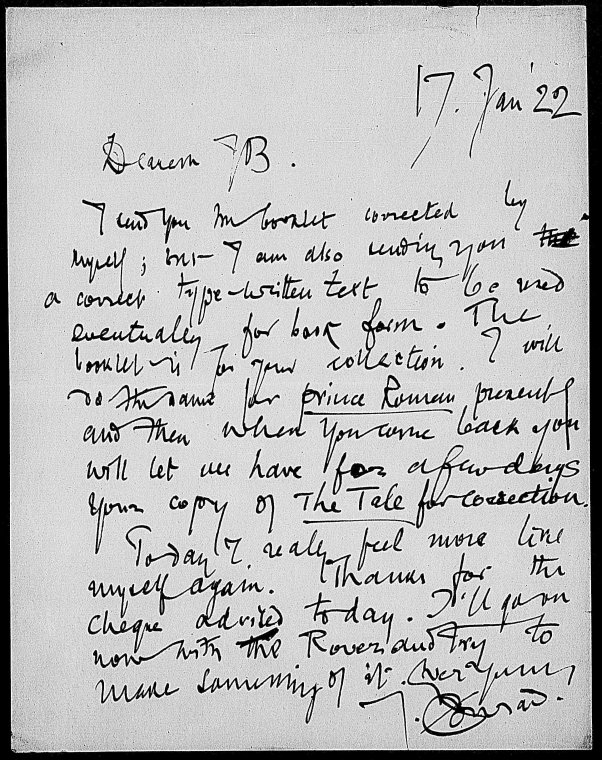 17. Jan '22
Dearest JB.
I send you the booklet corrected by
myself; but I am also sending you the
a correct type-written text to be used
eventually for book form. The
booklet is for your collection. I will
do the same for Prince Roman presently
and then when you come back you
will let me have for a few days
your copy of The Tale for correction.
Today I really feel more like
myself again. Thanks for the
cheque advised today. I'll go on
now with the Rover and try to
make something of it. Ever yours
J. Conrad.